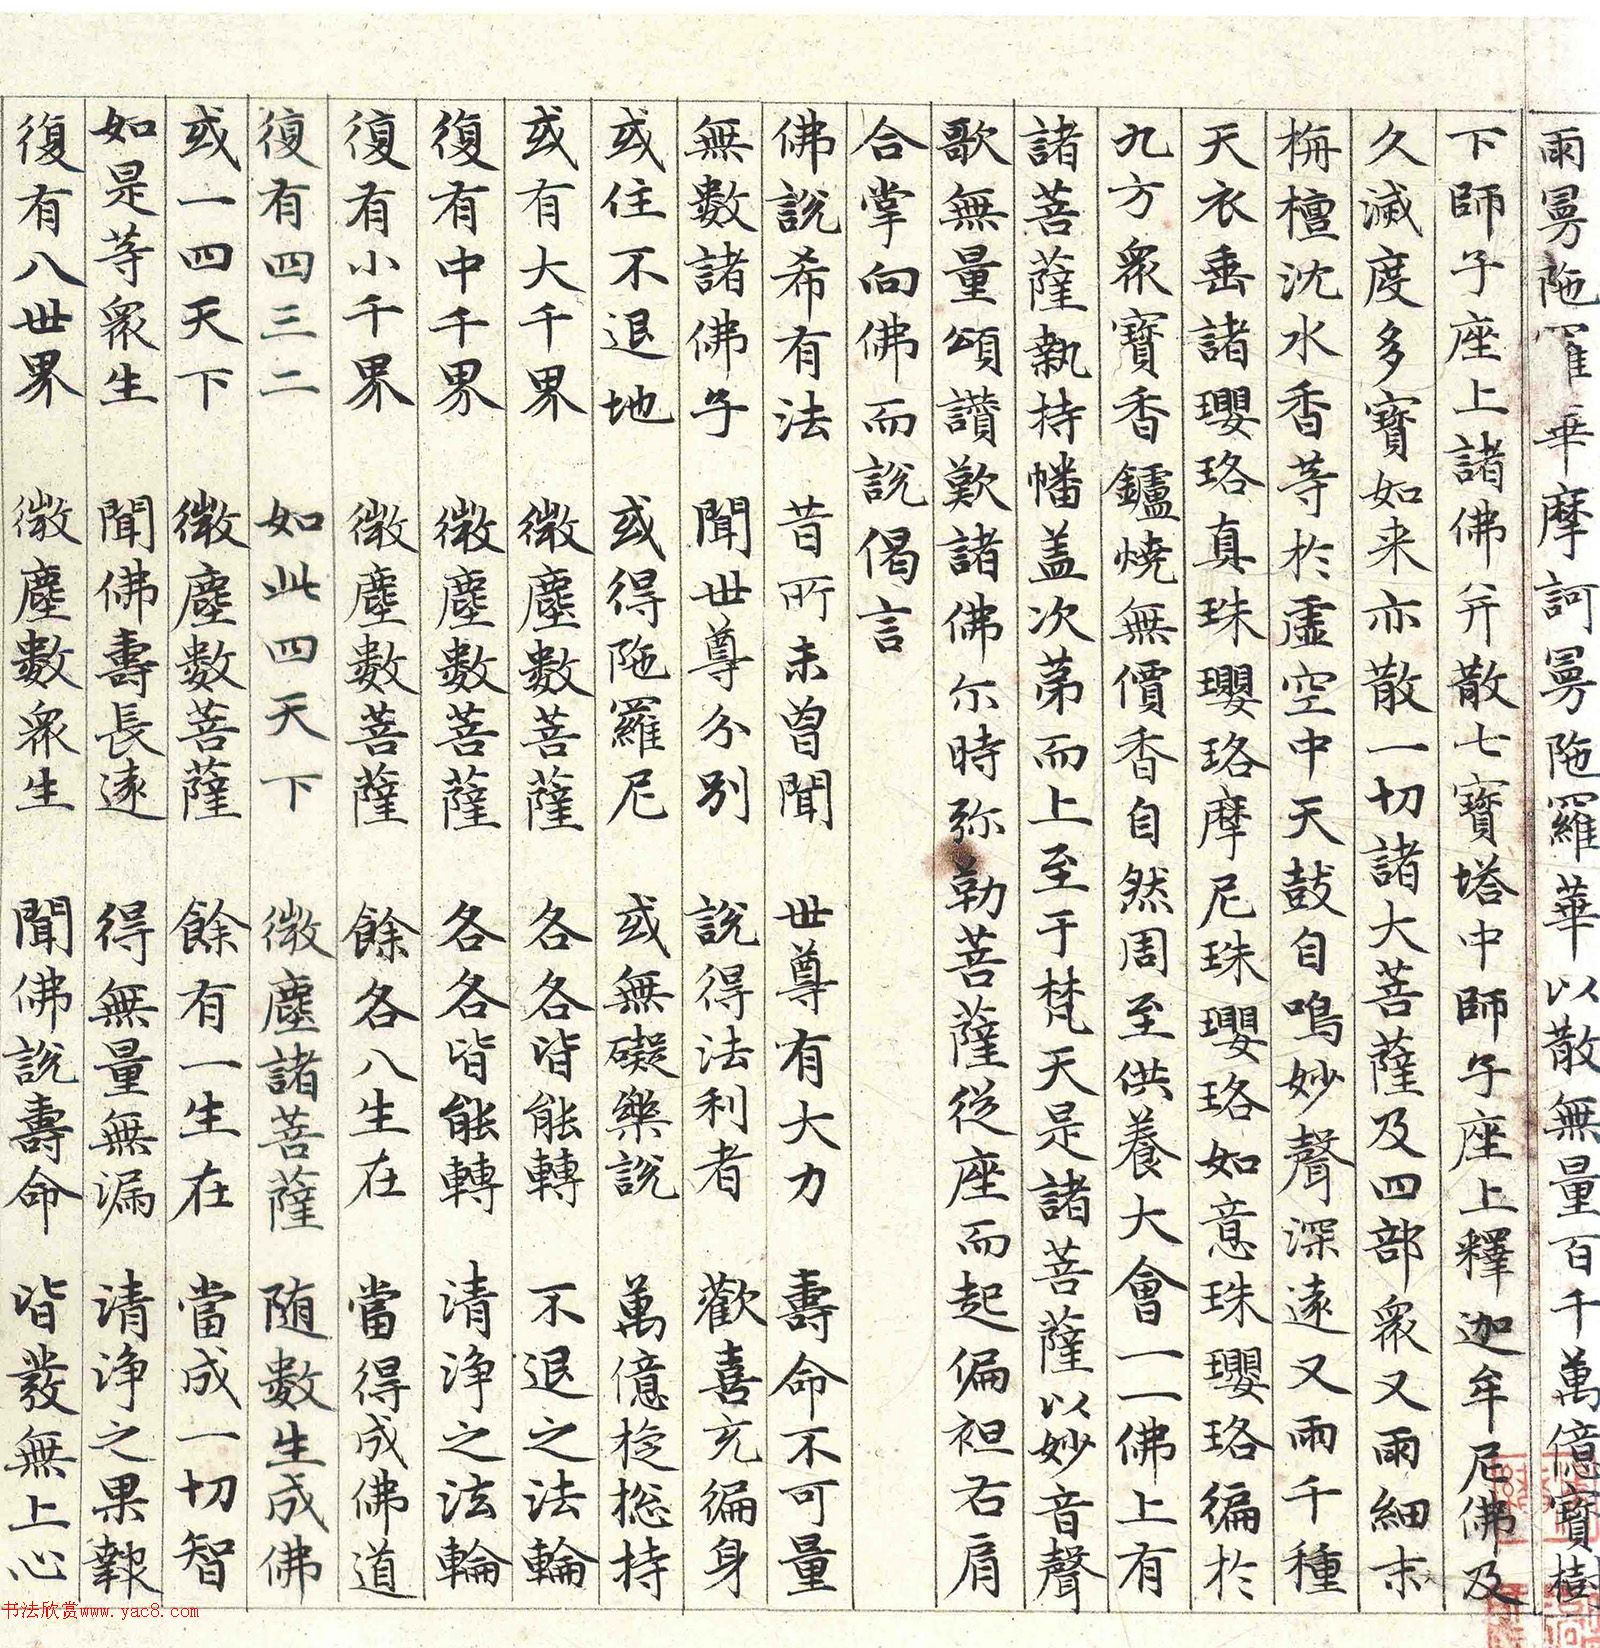 雨曼陁羅華摩訶曼陁羅華以散無量百千萬億寶樹
下師子座上諸佛并散七寶塔中師子座上釋迦牟尼佛及
久滅度多寶如来亦散一切諸大菩薩及四部眾又雨細末
栴檀沈水香等於虛空中天鼓自鳴妙聲深遠又雨千種
天衣垂諸瓔珞真珠瓔珞摩尼珠瓔珞如意珠瓔珞徧於
九方眾寶香鑪燒無價香自然周至供養大會一一佛上有
諸菩薩執持幡盖次第而上至于梵天是諸菩薩以妙音聲
歌無量頌讚歎諸佛尒時弥勒菩薩從座而起偏袒右肩
合掌向佛而說偈言
佛說希有法 昔所未曾聞 世尊有大力 壽命不可量
無數諸佛子 聞世尊分別 說得法利者 歡喜充徧身
或住不退地 或得陁羅尼 或無礙樂說 萬億捴持
或有大千界 微塵數菩薩 各各皆能轉 不退之法輪
復有中千界 微塵數菩薩 各各皆能轉 清淨之法輪
復有小千界 微塵數菩薩 餘各八生在 當得成佛道
復有四三二 如此四天下 微塵諸菩薩 随數生成佛
或一四天下 微塵數菩薩 餘有一生在 當成一切智
如是等眾生 聞佛壽長遠 得無量無漏 清淨之果報
復有八世界 微塵數眾生 聞佛說壽命 皆發無上心
书法欣赏www.yac8.com